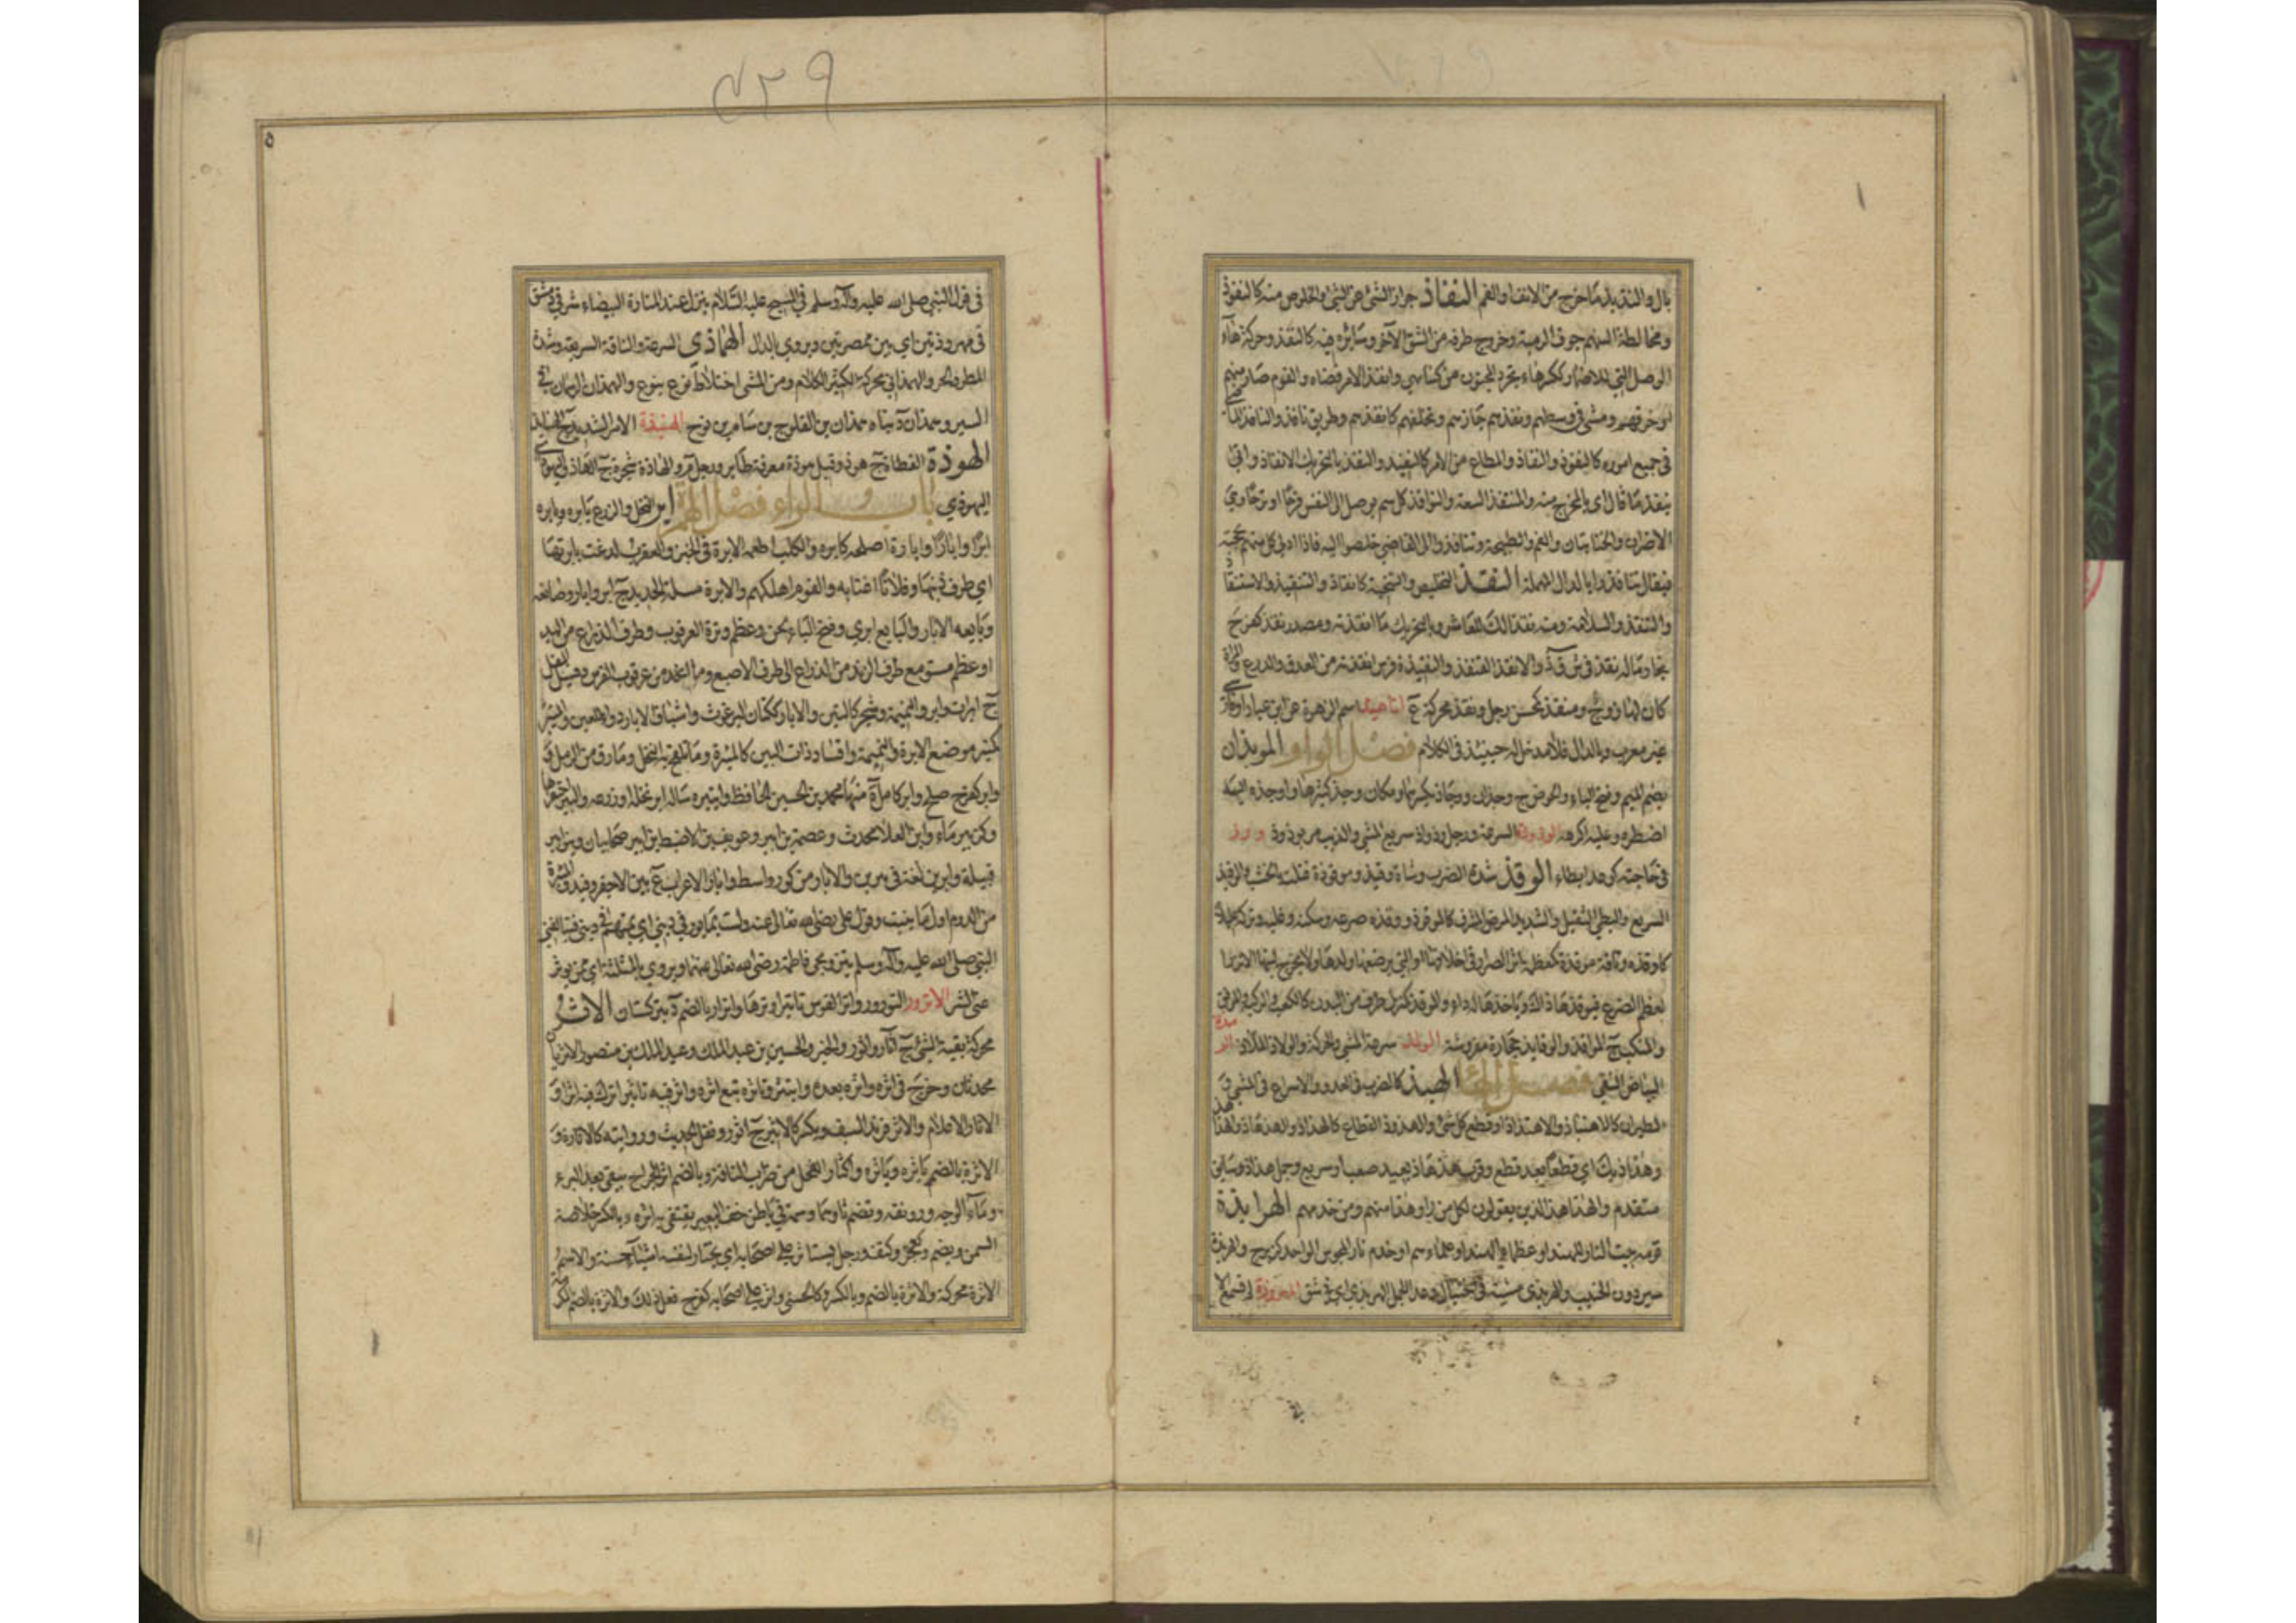 بال والنقذ بلد ما خرج من الانف والفم النفاذ جواز الشئ عن الشئ والخلوص منه كالنفوذ
ومخالطة السهم جوف الرمية وخروج طرفه من الشق الآخر وسائره فيه كالنفذ وحركة هاء
الوصل التي للاضمار وانفذ الامر قضاه والقوم صار منهم
او خرقهم ومشى في وسطهم ونفذهم جازهم وتخلفهم كانفذهم وطريق نافذ والنافذ الماضي
في جميع اموره كالنفوذ والنفاذ والمطاع من الامر كالنفيذ والنفذ بالتحريك الانفاذ
ينفذ ما قال اي بالمخرج منه والمنتفذ السعة والنوافذ كل سم يوصل الى النفس فرحا او ترحا
الاصران والخنابتان والفم والطبيجة وتنافذوا الى القاضي خلصوا اليه فاذا ادلى كل منهم بحجته
فيقال تنافدوا بالدال المهملة النقذ التخليص والتنجية كالانقاذ والتنقيذ والاستنقاذ
والتنقذ والسلامة ومنه نقذا لك للعاثر وبالتحريك ما انقذته ومصدر نقذ كفرح
نجا وماله نقذ في ش ق ذ والانقذ القنفذ والنقيذة فرس انقذته من العدو والدرع
كان لها زوج ومنقذ كمحسن رجل ونقذ محركة ع اناهيذ اسم الزهرة عن ابن عباد او فارسية
غير معرب وبالدال فلا مدخل له حينئذ في الكلام فصل الواو الموبذان
بضم الميم وفتح الباء
اضطره وعليه اكرهه الوذوذة السرعة ورجل وذواذ سريع المشي والذئب مر يوذوذ ورذ
في حاجته كوعد ابطاء الوقذ شدة الضرب وشاة وقيذ وموقوذة قتلت بالخشب والوقيذ
السريع والبطيء الثقيل والشديد المرض المشرف كالموقوذ ووقذه صرعه وسكنه وغلبه وتركه عليلا
كاوقذه وناقة موقذة كمعظمة اثر الصرار في اخلافها او التي يرضعها ولدها ولا يخرج لبنها الا نزرا
لعظم الضرع فيوقذها ذلك وياخذها له داء والموقذ كمنزل طرف من البدن كالكعب والركبة والمرفق
والمنكب ج المواقذ والوقايذ حجارة مفروشة الولذ سرعة المشي والحركة والولاذ الملاذ
البياض النقي فصل الهاء الهبذ كالضرب العدو والاسراع في المشي
الطيران كالاهتباذ والاهتذاذ او قطع كل شئ والهذوذ القطاع كالهذاذ
وهذاذيك اي قطعا بعد قطع وقرب هذهاذ بعيد صعب او سريع وجمل هذاذ سابق
متقدم والهذاهذ الذين يقولون لكل من راوه هذا منهم ومن خدمهم الهرابذة
قومة بيت النار للهند او عظماء الهند او علماؤهم او خدم نار المجوس الواحد كزبرج والهربذة
سير دون الخبب والهربذى مشية في اختيال وعدا الجمل الهربذى اي في شق
في قول النبي صلى الله عليه وآله وسلم في المسيح عليه السلام ينزل عند المنارة البيضاء شرقي دمشق
في مهروذتين اي بين ممصرتين ويروى بالدال الهماذي السرعة والناقة السريعة وشدة
المطر والحر والهمذاني محركة الكثير الكلام ومن المشي اختلاط نوع بنوع والهمذان الرسفان في
السير وهمذان د بناه همذان بن الفلوج بن سام بن نوح الهنبذة الامر الشديد ج الهنابذ
الهوذة القطاة ج هوذ وقبل هوذة معرفة طاير ورجل م والهاذة شجرة ج الهاذ
اليهوذي باب الراء فصل الهمزة ابر النخل والزرع يابره ويابره
ابرا وابارا وابارة اصلحه كابره والكلب اطعمه الابرة في الخبز والعقرب لدغت بابرتها
اي طرف ذنبها وفلانا اغتابه والقوم اهلكهم والابرة مسلة الحديد ج ابر وابار وصانعه
وبايعه الابار والبايع ابري وفتح الباء لحن وعظم وترة العرقوب وطرف الذراع من اليد
او عظم مستو مع طرف الزند من الذراع الى طرف الاصبع وما انحد من عرقوب الفرس وفسيل المقل
ج ابرات وابر والنميمة وشجر كالتين والابار ككتان البرغوث واشياف الابار دواء للعين والمئبر
كمنبر موضع الابرة والنميمة وافساد ذات البين كالمئبرة وما يلقح به النخل وما رق من الرمل
وابر كفرح صلح وآبر كآمل ة منها محمد بن الحسين الحافظ وايتبره ساله ابر نخله او زرعه والبير احتفرها
وكزبير ماء وابن العلا محدث وعصمة بن ابير وعويف بن الاضبط بن ابير صحابيان وبنو ابير
قبيلة وابرين لغة في يبرين والابار من كور واسط وابار الاعراب ع بين الاجفر وفيد
من الدوم اول ما ينبت وقول علي رضي الله تعالى عنه ولست بمابور في ديني اي بمتهم في ديني فيتالفني
النبي صلى الله عليه وآله وسلم بتزويجي فاطمة رضي الله تعالى عنهما ويروى بالمثلثة اي ممن يوثر
عني الشر الاترور التؤرور واتر القوس تاتيرا وترها واترار بالضم د بتركستان الاثر
محركة بقية الشئ ج آثار واثور والخبر والحسين بن عبد الملك وعبد الملك بن منصور الاثريان
محدثان وخرج في اثره واثره بعده وايتثره وتاثره تبع اثره واثر فيه تاثيرا ترك فيه اثرا
الاثار الاعلام والاثر فرند السيف ويكسر كالاثير ج اثور ونقل الحديث وروايته كالاثارة
الاثرة بالضم ياثره وياثره واكثار الفحل من ضراب الناقة وبالضم اثر الجراح يبقى بعد البرء
وماء الوجه ورونقه وتضم ثاوهما وسمة في باطن خف البعير يقتفى بها اثره وبالكسر خلاصة
السمن ويضم وكعجز وكتف رجل يستاثر على اصحابه اي يختار لنفسه اشياء حسنة والاسم
الاثرة محركة والاثرة بالضم وبالكسر وكالحسنى واثر على اصحابه كفرح فعل ذلك والاثرة بالضم